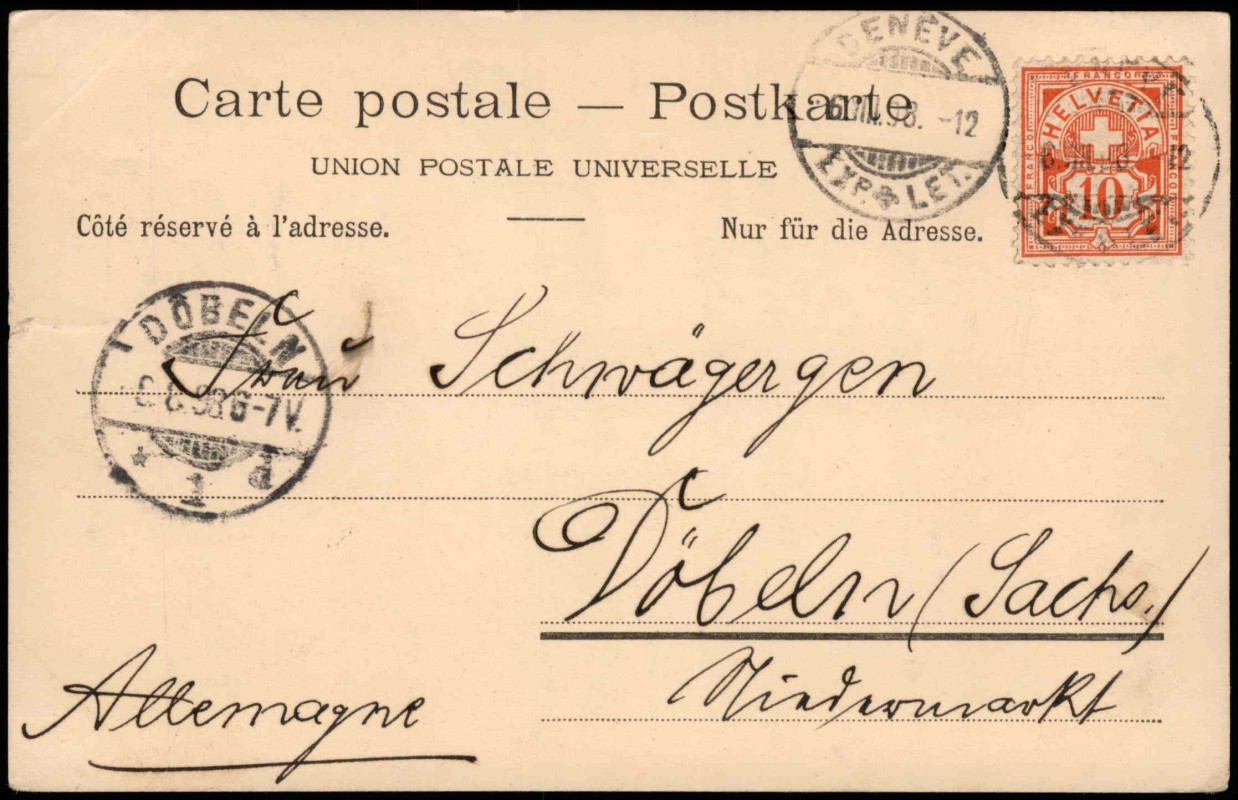 Carte postale — Postkarte
UNION POSTALE UNIVERSELLE
Côté réservé à l'adresse. Nur für die Adresse.
GENÈVE
-12
EXP. LET.
FRANCO
HELVETIA
FRANCO FRANCO
10
12
DÖBELN
6-7V.
* 1 d
Frau Schwägergen
Döbeln (Sachs.)
Niedermarkt
Allemagne